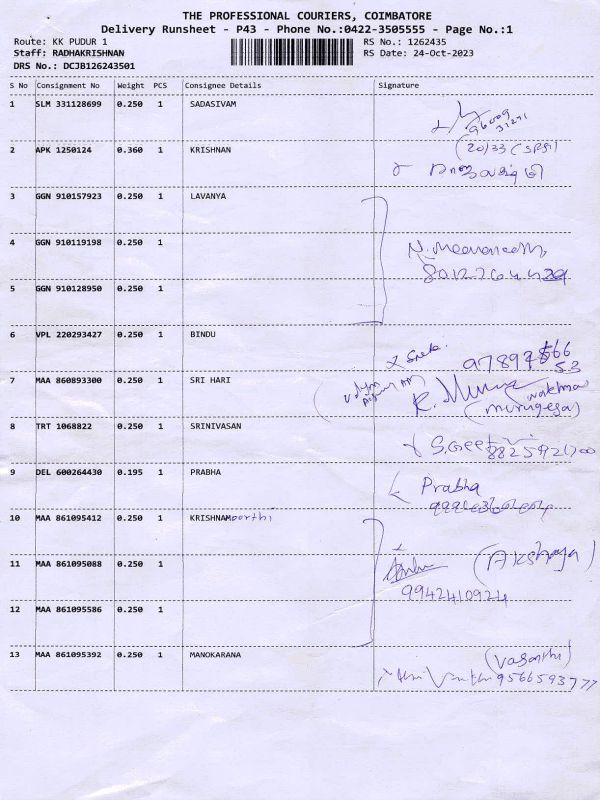 THE PROFESSIONAL COURIERS, COIMBATORE
Delivery Runsheet - P43 - Phone No.:0422-3505555 - Page No.:1
Route: KK PUDUR 1 RS No.: 1262435
Staff: RADHAKRISHNAN RS Date: 24-Oct-2023
DRS No.: DCJB126243501
S No Consignment No Weight PCS Consignee Details Signature
1 SLM 331128699 0.250 1 SADASIVAM
2 APK 1250124 0.360 1 KRISHNAN
3 GGN 910157923 0.250 1 LAVANYA
4 GGN 910119198 0.250 1
5 GGN 910128950 0.250 1
6 VPL 220293427 0.250 1 BINDU
7 MAA 860893300 0.250 1 SRI HARI
(murugesa)
8 TRT 1068822 0.250 1 SRINIVASAN
9 DEL 600264430 0.195 1 PRABHA Prabha
10 MAA 861095412 0.250 1 KRISHNAMoorthi
11 MAA 861095088 0.250 1 (Akshaya)
9942410924
12 MAA 861095586 0.250 1
13 MAA 861095392 0.250 1 MANOKARANA (vasanthi)
9566593777